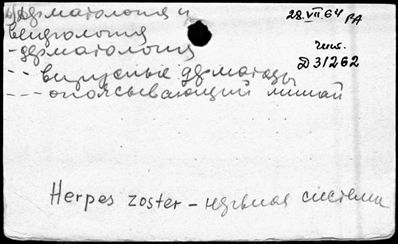 Дерматология и
венерология
- дерматология
-- вирусные дерматозы
--- опоясывающий лишай
28.VII.64
Д31262
Herpes zoster – нервная система